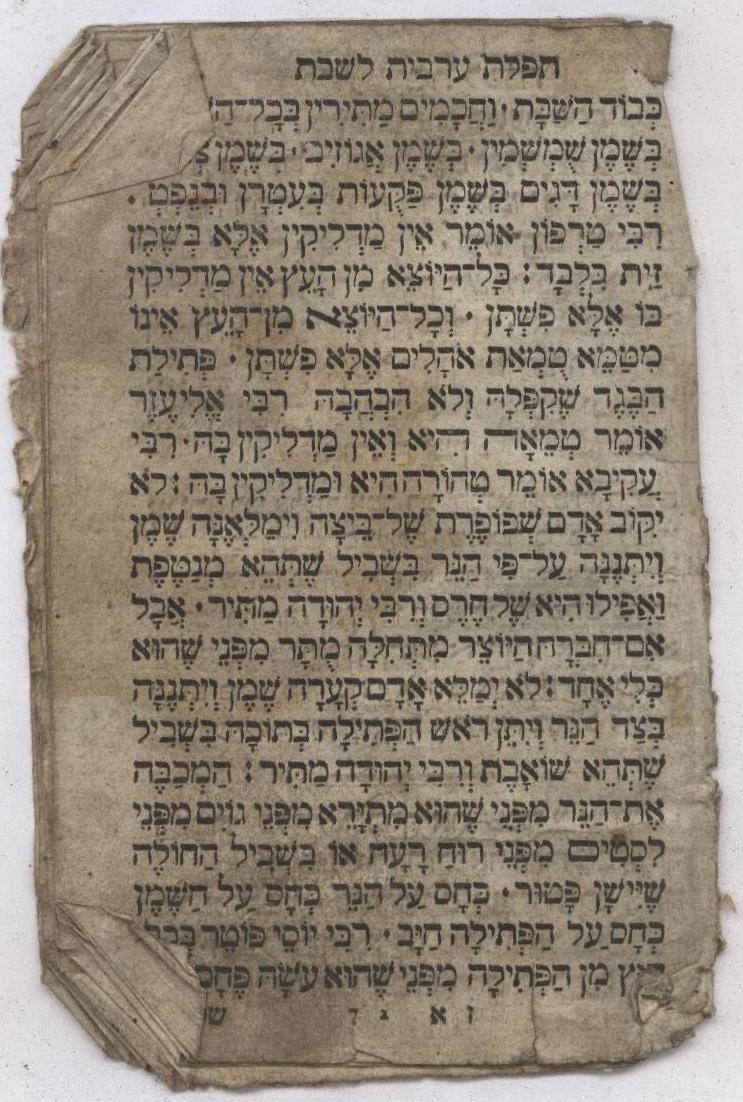 תפלת ערבית לשבת
כְּבוֹד הַשַּׁבָּת · וַחֲכָמִים מַתִּירִין בְּכָל־
בְּשֶׁמֶן שֻׁמְשְׁמִין · בְּשֶׁמֶן אֱגוֹזִים · בְּשֶׁמֶן
בְּשֶׁמֶן דָּגִים בְּשֶׁמֶן פַּקֻּעוֹת בְּעִטְרָן וּבְנֵפְטְ ·
רִבִּי טַרְפוֹן אוֹמֵר אֵין מַדְלִיקִין אֶלָּא בְּשֶׁמֶן
זַיִת בִּלְבָד : כָּל־הַיּוֹצֵא מִן הָעֵץ אֵין מַדְלִיקִין
בּוֹ אֶלָּא פִשְׁתָּן · וְכָל־הַיּוֹצֵא מִן־הָעֵץ אֵינוֹ
מִטַּמֵּא טֻמְאַת אֹהָלִים אֶלָּא פִשְׁתָּן · פְּתִילַת
הַבֶּגֶד שֶׁקִּפְּלָהּ וְלֹא הִבְהֲבָהּ רִבִּי אֱלִיעֶזֶר
אוֹמֵר טְמֵאָה הִיא וְאֵין מַדְלִיקִין בָּהּ · רִבִּי
עֲקִיבָא אוֹמֵר טְהוֹרָה הִיא וּמַדְלִיקִין בָּהּ : לֹא
יִקּוֹב אָדָם שְׁפוֹפֶרֶת שֶׁל־בֵּיצָה וִימַלְאֶנָּה שֶׁמֶן
וְיִתְּנֶנָּה עַל־פִּי הַנֵּר בִּשְׁבִיל שֶׁתְּהֵא מְנַטֶּפֶת
וַאֲפִילוּ הִיא שֶׁל חֶרֶס וְרִבִּי יְהוּדָה מַתִּיר · אֲבָל
אִם־חִבְּרָהּ הַיּוֹצֵר מִתְּחִלָּה מֻתָּר מִפְּנֵי שֶׁהוּא
כְּלִי אֶחָד : לֹא יְמַלֵּא אָדָם קְעָרָה שֶׁמֶן וְיִתְּנֶנָּה
בְּצַד הַנֵּר וְיִתֵּן רֹאשׁ הַפְּתִילָה בְּתוֹכָהּ בִּשְׁבִיל
שֶׁתְּהֵא שׁוֹאֶבֶת וְרִבִּי יְהוּדָה מַתִּיר : הַמְכַבֶּה
אֶת־הַנֵּר מִפְּנֵי שֶׁהוּא מִתְיָרֵא מִפְּנֵי גוֹיִם מִפְּנֵי
לִסְטִים מִפְּנֵי רוּחַ רָעָה אוֹ בִּשְׁבִיל הַחוֹלֶה
שֶׁיִּישָׁן פָּטוּר · כְּחָס עַל הַנֵּר כְּחָס עַל הַשֶּׁמֶן
כְּחָס עַל הַפְּתִילָה חַיָּב · רִבִּי יוֹסֵי פּוֹטֵר בְּכֻלָּ
חוּץ מִן הַפְּתִילָה מִפְּנֵי שֶׁהוּא עֹשָׂהּ פֶּחָם
ז א ג ד ש